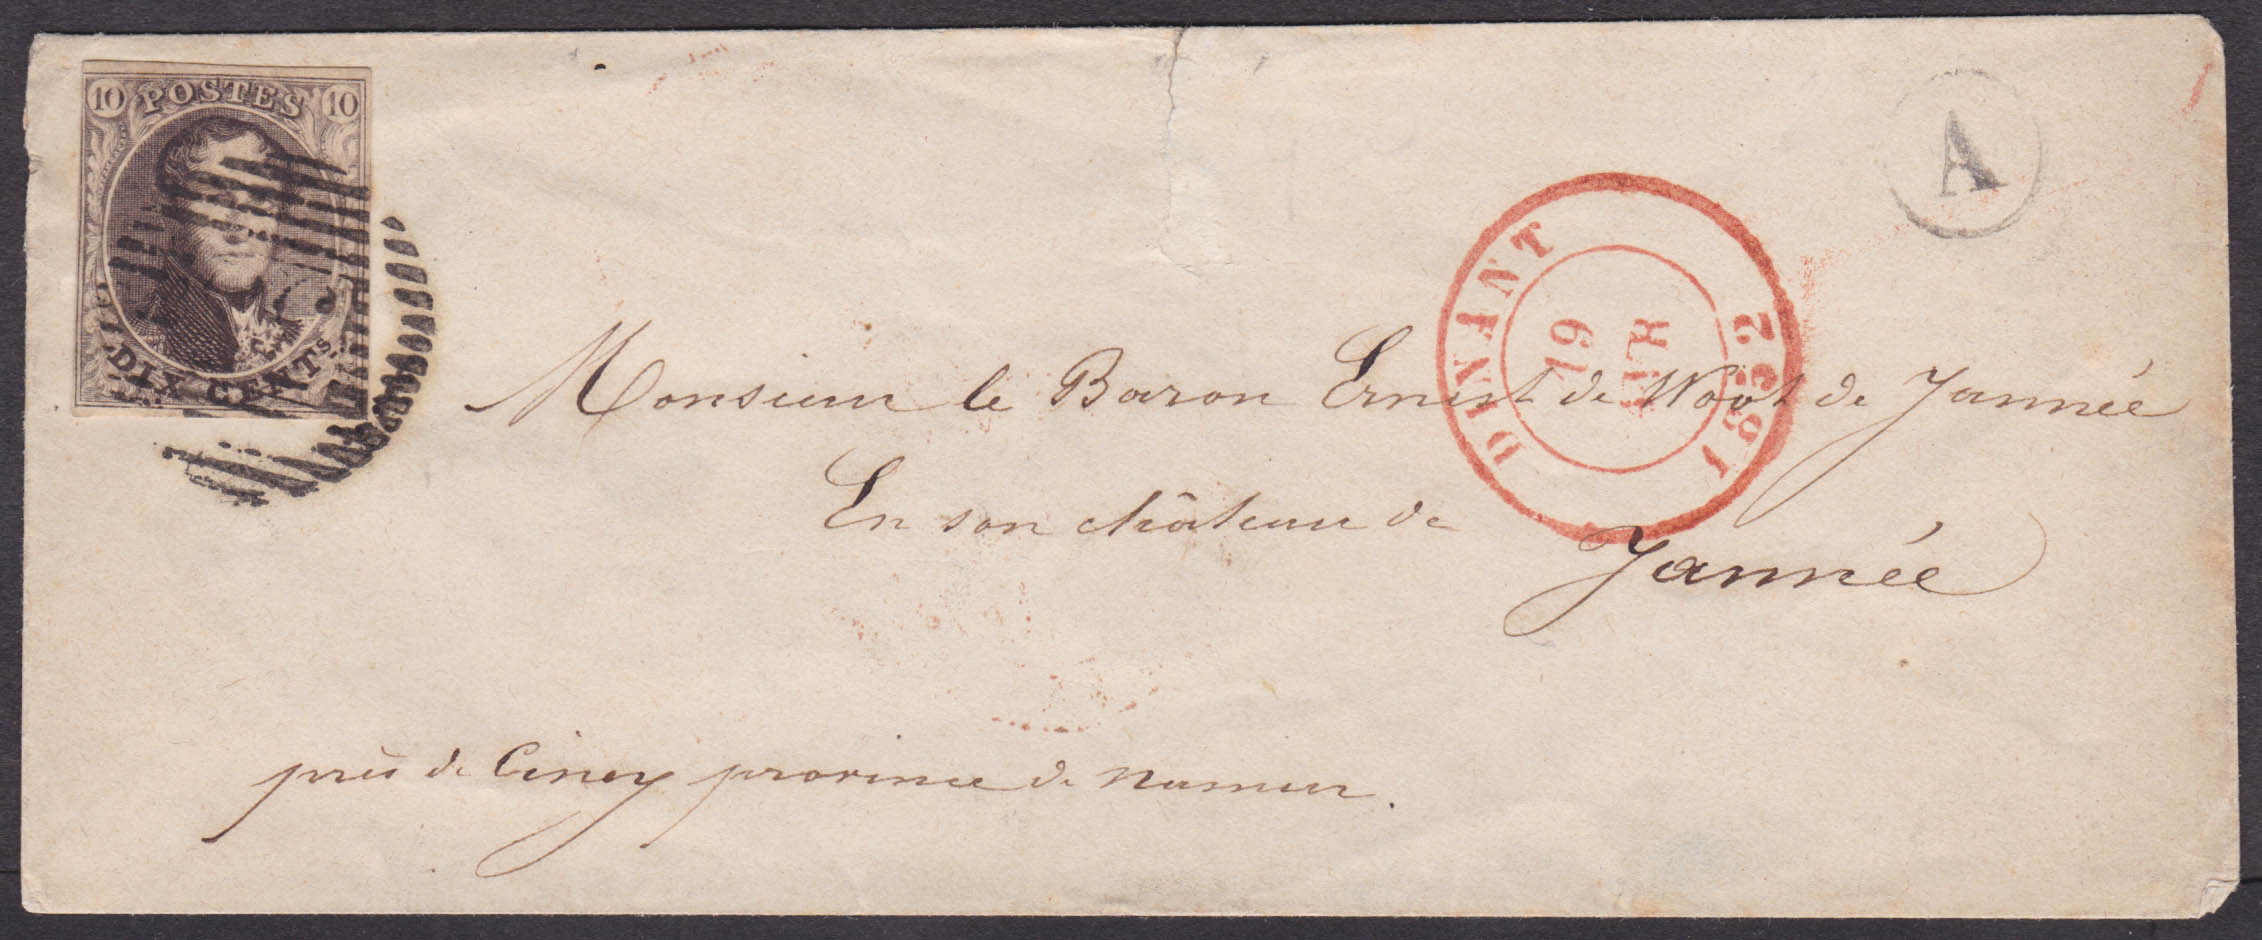 10 POSTES 10
DIX CENTS.
A
DINANT
19
AVR
1852
Monsieur le Baron Ernest de Woot de Jannée
En son château de
Jannée
près de Ciney province de Namur.